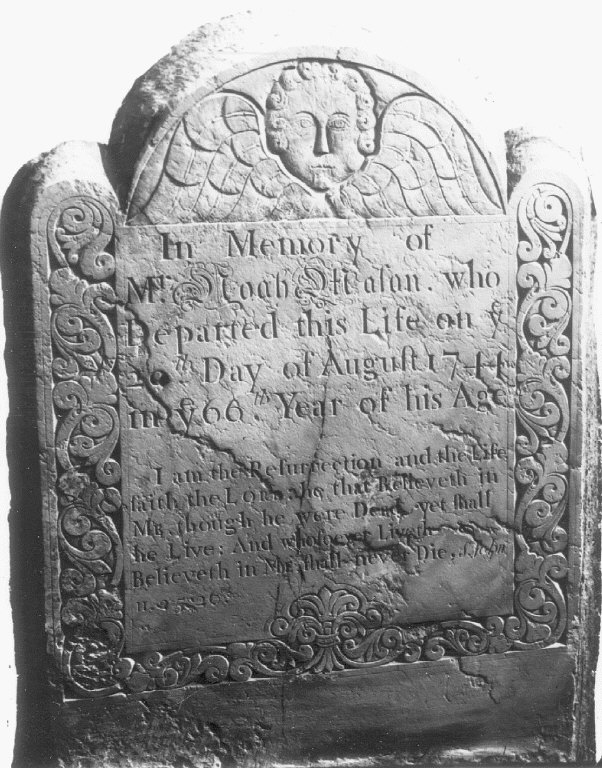 In Memory of
Mr. Noah Mason. who
Departed this Life on ye
20th Day of Auguſt 1744
in ye 66.th Year of his Age
I am the Reſurrection and the Life
ſaith the LORD: he that Believeth in
ME, though he were Dead, yet ſhall
he Live: And whoſoever Liveth &
Believeth in ME, ſhall never Die, S. John
11. 25, 26.